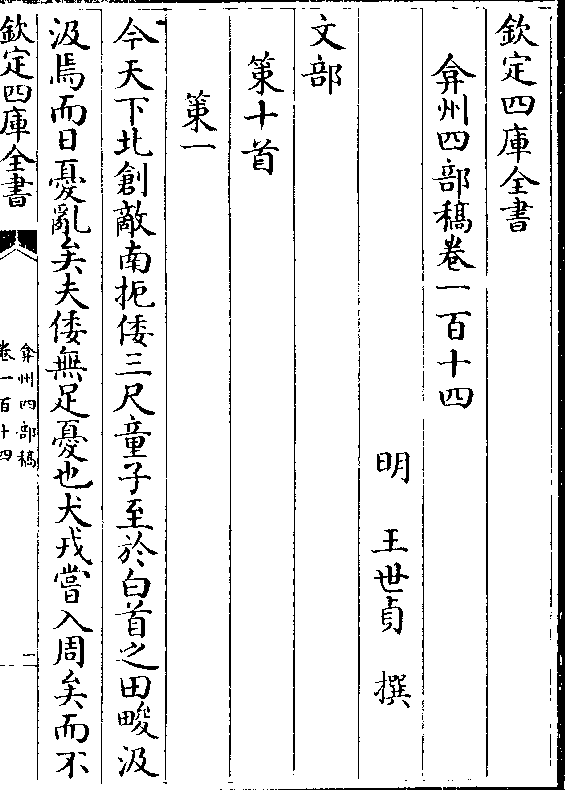 欽定四庫全書
弇州四部稿卷一百十四
明　王世貞　撰
文部
策十首
策一
今天下北創敵南扼倭三尺童子至於白首之田畯汲
汲焉而日憂亂矣夫倭無足憂也犬戎嘗入周矣而不
欽定四庫全書
弇州四部稿
卷一百十四
一